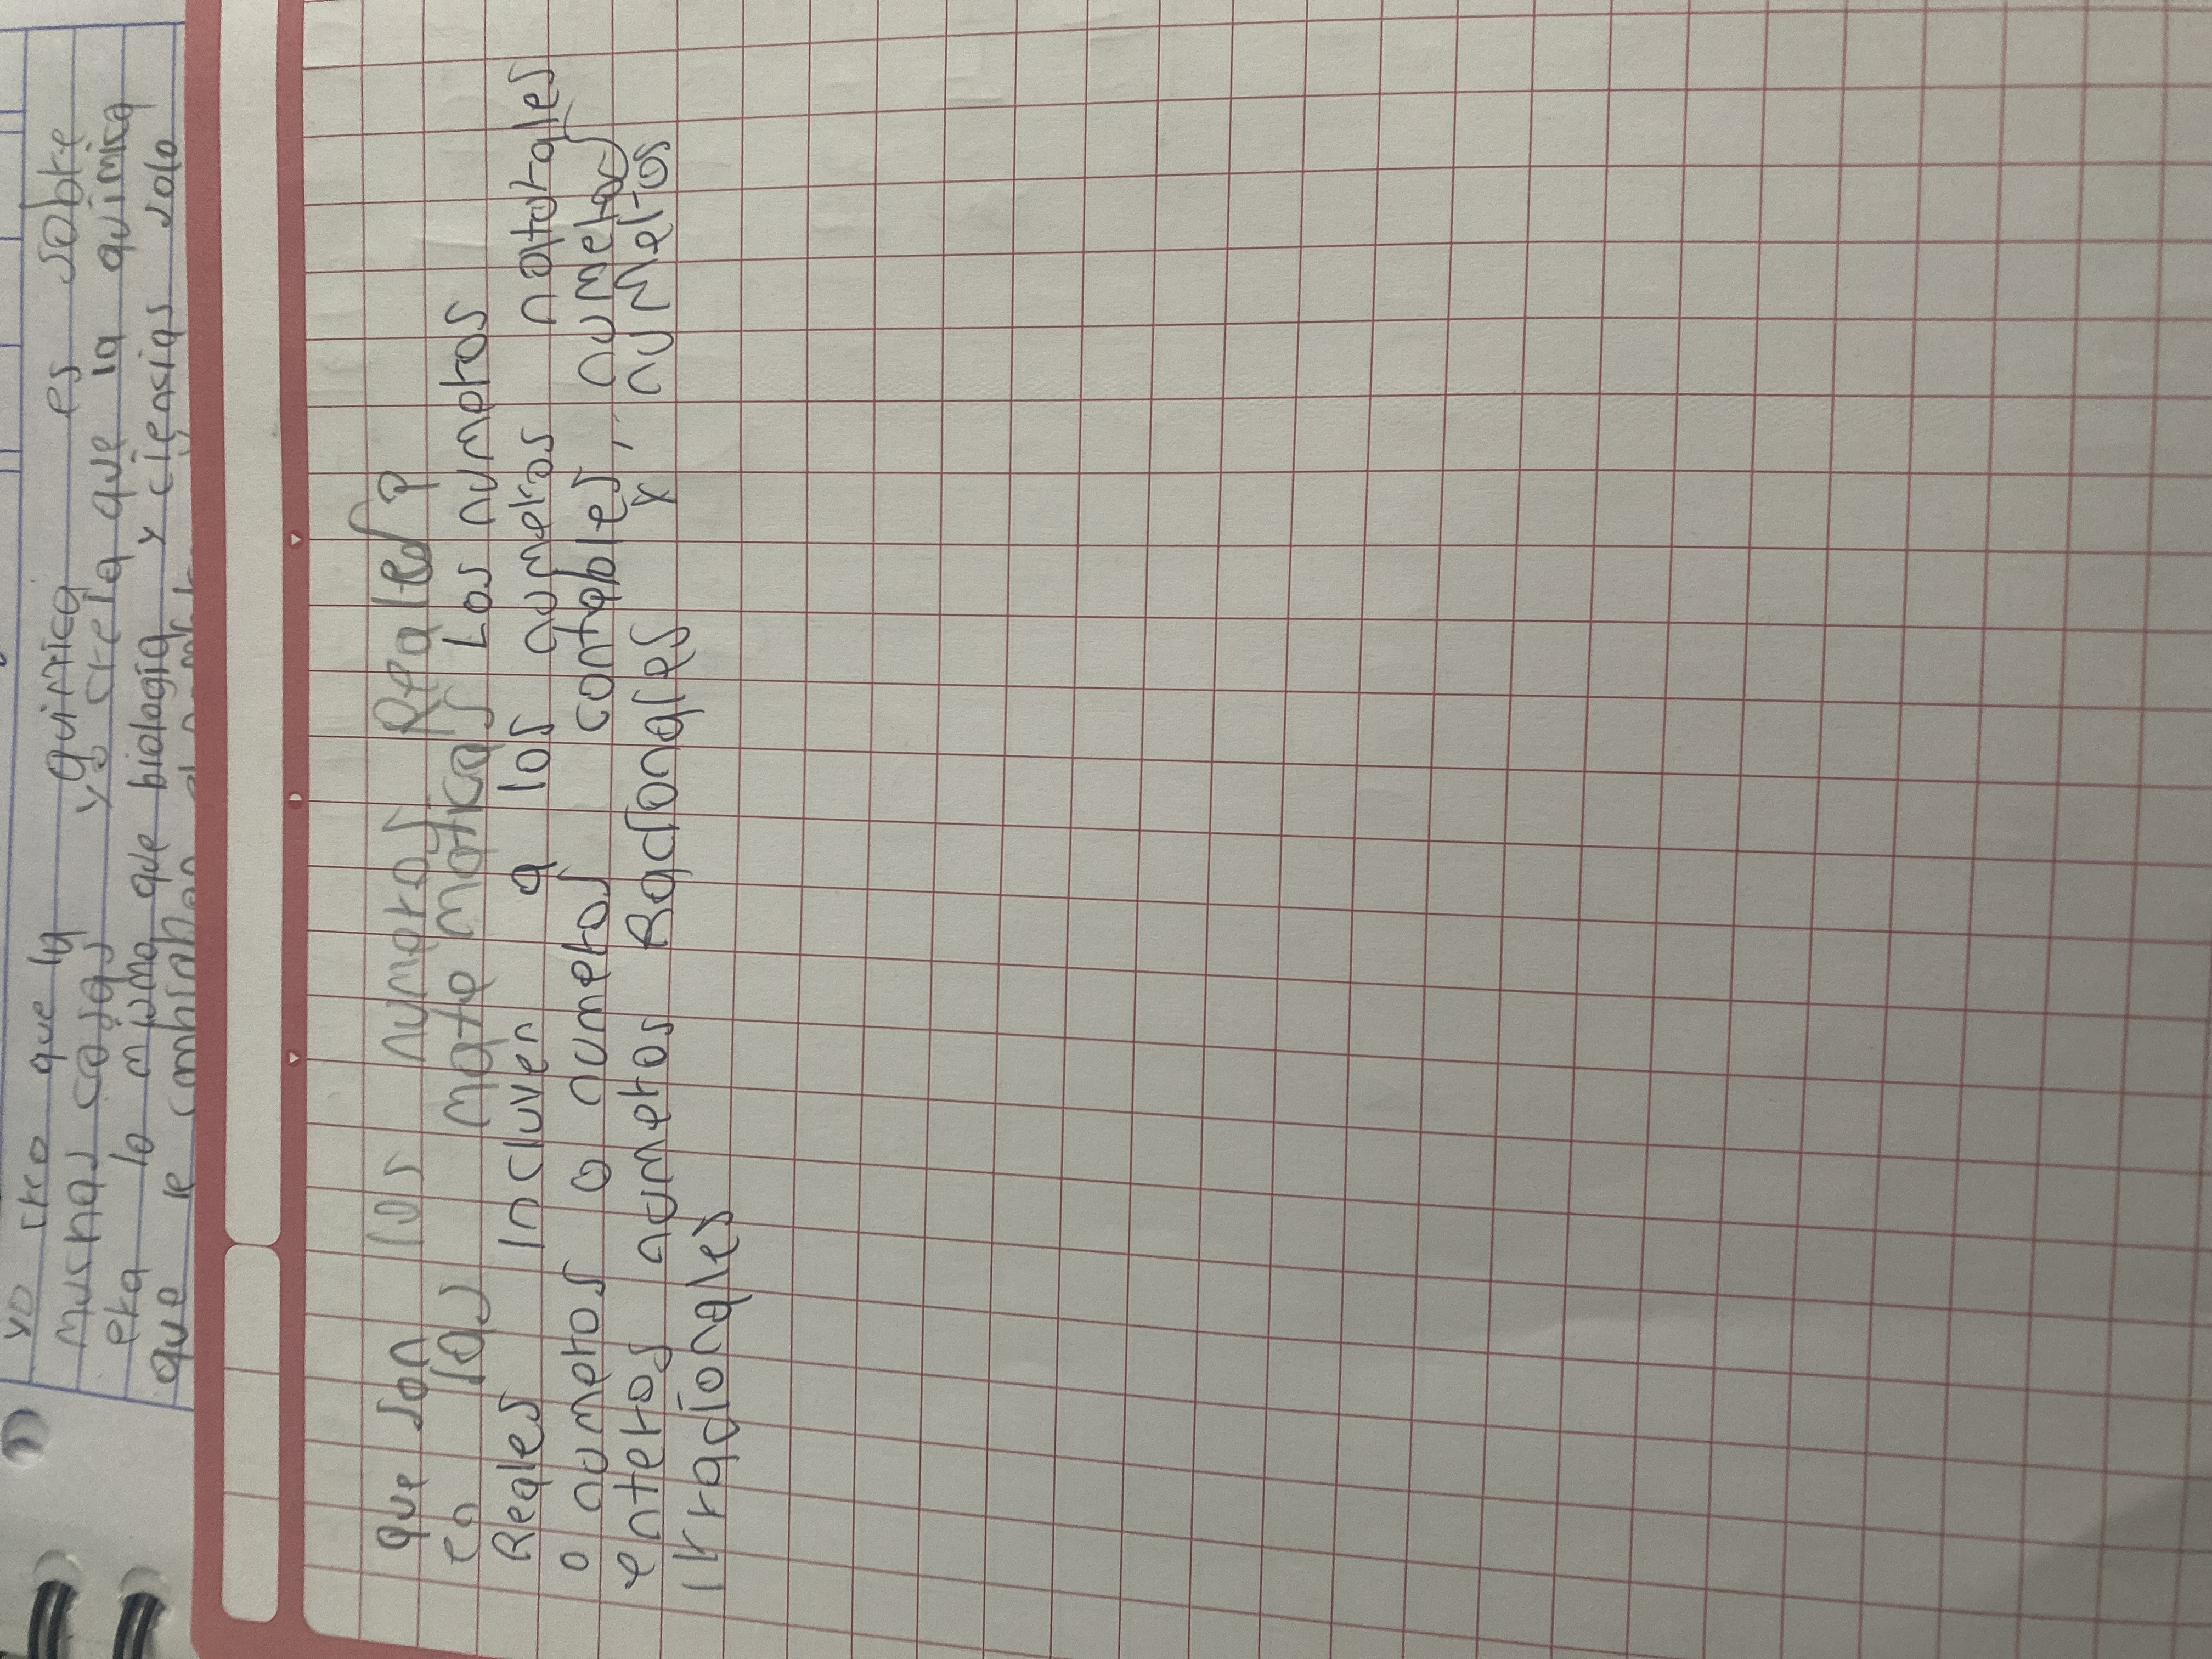 yo creo que la quimica es sobre
muschas cosas y creia que la quimica
era lo mismo que biologia y ciensias solo
que se combinaban
que son los numeros Reales?
en las mate maticas Los numeros
Reales Incluven a los numeros natorales
o numeros o numeros contables, numeros
enteros numeros Racionales y numeros
Irracionales